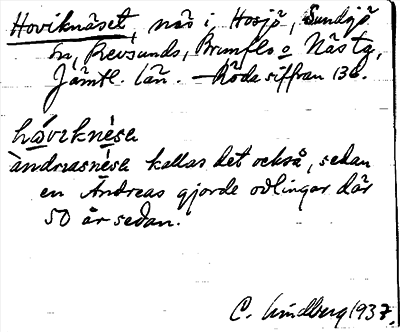 Hoviknäset, näs i Hosjö, Sundsjö
sn, Revsunds, Brunflo o Näs tg,
Jämtl. län. – Röda siffran 136.
håviknésə
àndreasnésə kallas det också, sedan
en Andreas gjorde odlingar där
50 år sedan.
C. Lindberg 1937.